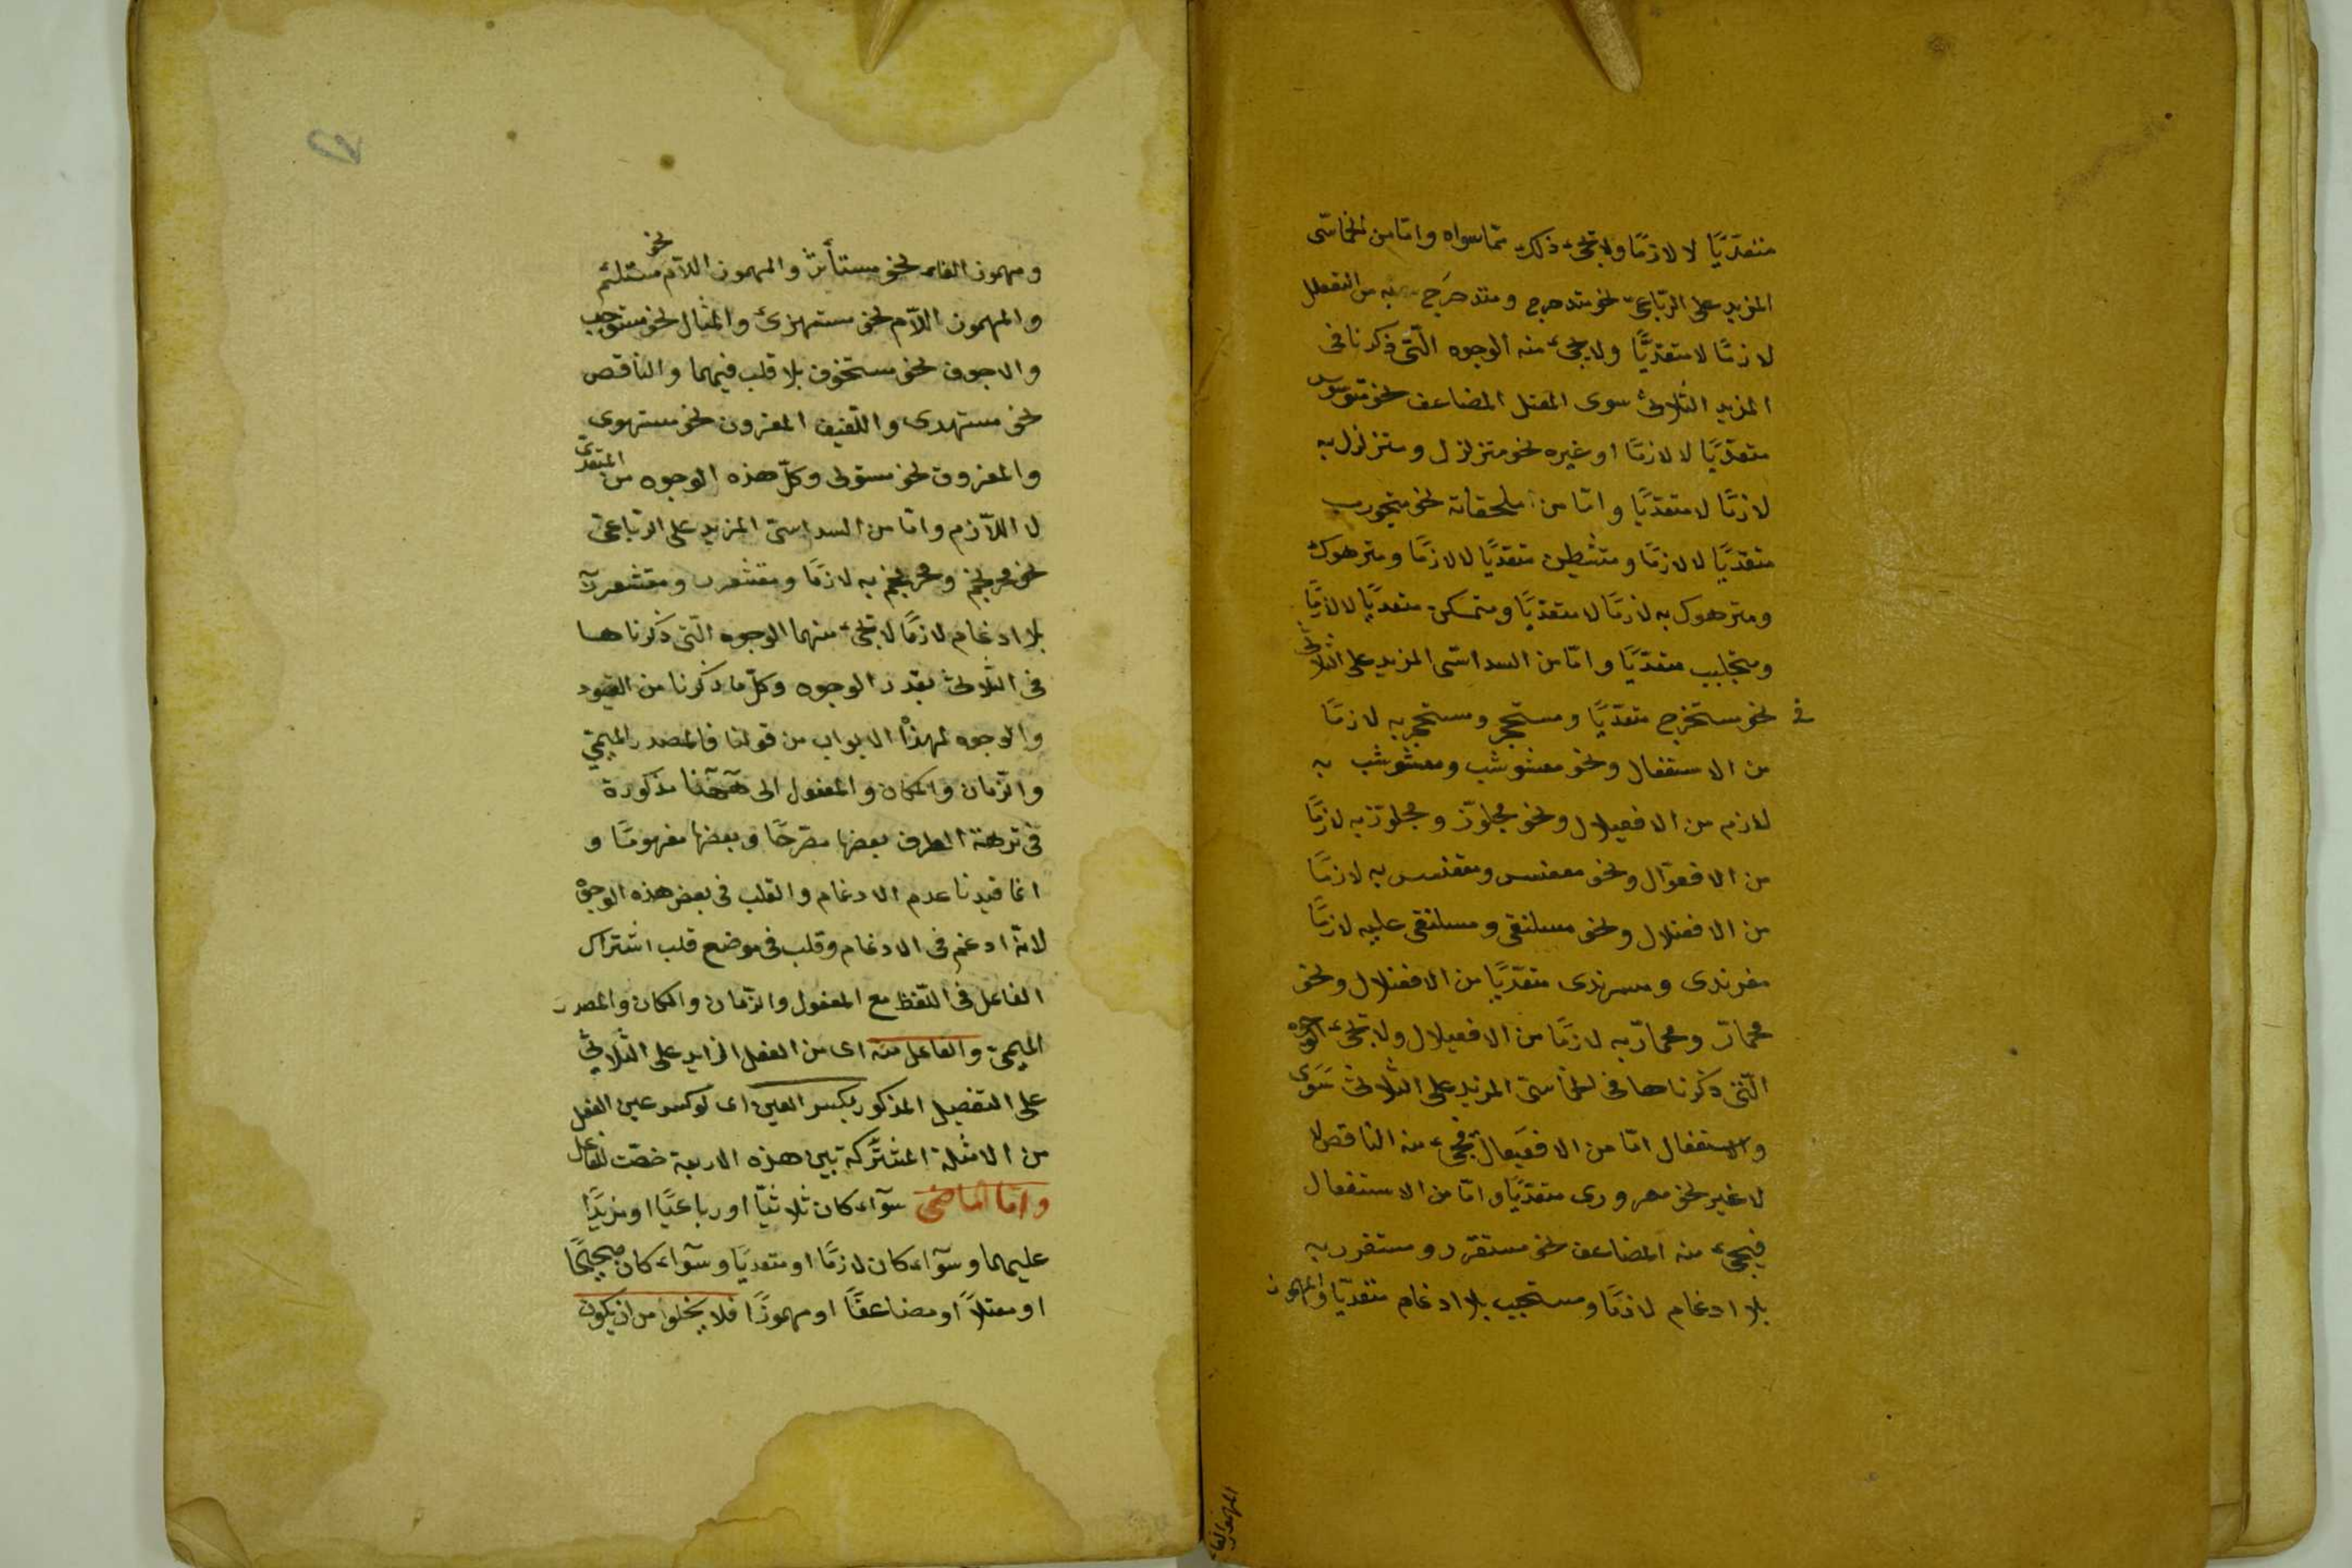 متعدّيًا لا لازمًا ولا يجئ ذلك ممّا سواه وامّا من الخماسّى
المزيد على الرّباعىّ نحو متدحرج ومتدحرَج به من التفعلل
لازمًا لا متعدّيًا ولا يجئ منه الوجوه الّتى ذكرنا فى
المزيد الثلاثى سوى المعتل المضاعف نحو متوسوس
متعدّيًا لا لازمًا او غيره نحو متزلزل ومتزلزل به
لازمًا لا متعدّيًا وامّا من ملحقاته نحو متجورب
متعدّيًا لا لازمًا ومتشيطن متعدّيًا لا لازمًا ومترهوك
ومترهوك به لازمًا لا متعدّيًا ومتمسكن متعدّيًا لا لازمًا
ومتجلبب متعدّيًا وامّا من السداسّى المزيد على الثلاثى
فى نحو مستخرج متعدّيًا ومستحجر ومستحجر به لازمًا
من الاستفعال ونحو معشوشب ومعشوشب به
لازم من الافعيلال ونحو مجلوّز ومجلوّز به لازمًا
من الافعوّال ونحو مقعنسس ومقعنسس به لازمًا
من الافعنلال ونحو مسلنقى ومسلنقى عليه لازمًا
مغرندى ومسرندى متعدّيًا من الافعنلال ونحو
محمارّ ومحمارّ به لازمًا من الافعيلال ولا تجئ الوجوه
الّتى ذكرناها فى الخماسىّ المزيد على الثلاثى سوى
والاستفعال امّا من الافعيعال فيجئ منه الناقص
لا غير نحو معرورى متعدّيًا وامّا من الاستفعال
فيجئ منه المضاعف نحو مستقرر ومستقرر به
بلا ادغام لازمًا ومستحبب بلا ادغام متعدّيًا والمهموز
المهموز الفاء
ومهموز الفاء نحو مستأثر والمهموز اللاّم نحو مستلئم
والمهموز اللاّم نحو مستهزئ والمثال نحو مستوجب
والاجوف نحو مستخوف بلا قلب فيهما والناقص
نحو مستهدى واللّفيف المقرون نحو مستهوى
والمفروق نحو مستولى وكلّ هذه الوجوه من المتعدّى
لا اللاّزم وامّا من السداسىّ المزيد على الرّباعىّ
نحو محرنجم ومحرنجم به لازمًا ومقشعرر ومقشعرر به
بلا ادغام لازمًا لا تجئ منهما الوجوه الّتى ذكرناها
فى الثلاثى بقدر الوجوه وكلّ ما ذكرنا من القيود
والوجوه لهذه الابواب من قولنا فالمصدر الميمىّ
والزّمان والمكان والمفعول الى ههنا مذكورة
فى ترجمة الطرف بعضها مصرّحًا وبعضها مفهومًا و
انّما قيدنا عدم الادغام والقلب فى بعض هذه الوجوه
لانّه ادغم فى الادغام وقلب فى موضع قلب اشتراك
الفاعل فى اللّفظ مع المفعول والزّمان والمكان والمصدر
الميمىّ والفاعل منه اى من الفعل الزايد على الثلاثىّ
على التفصيل المذكور بكسر العين اى لو كسر عين الفعل
من الامثلة المشتركة بين هذه الاربعة خصّت للفاعل
وامّا الماضى سوآء كان ثلاثيّا او رباعيّا او مزيدًا
عليهما وسوآء كان لازمًا او متعدّيًا وسوآء كان صحيحًا
او معتلاًّ او مضاعفًا او مهموزًا فلا يخلو من ان يكون